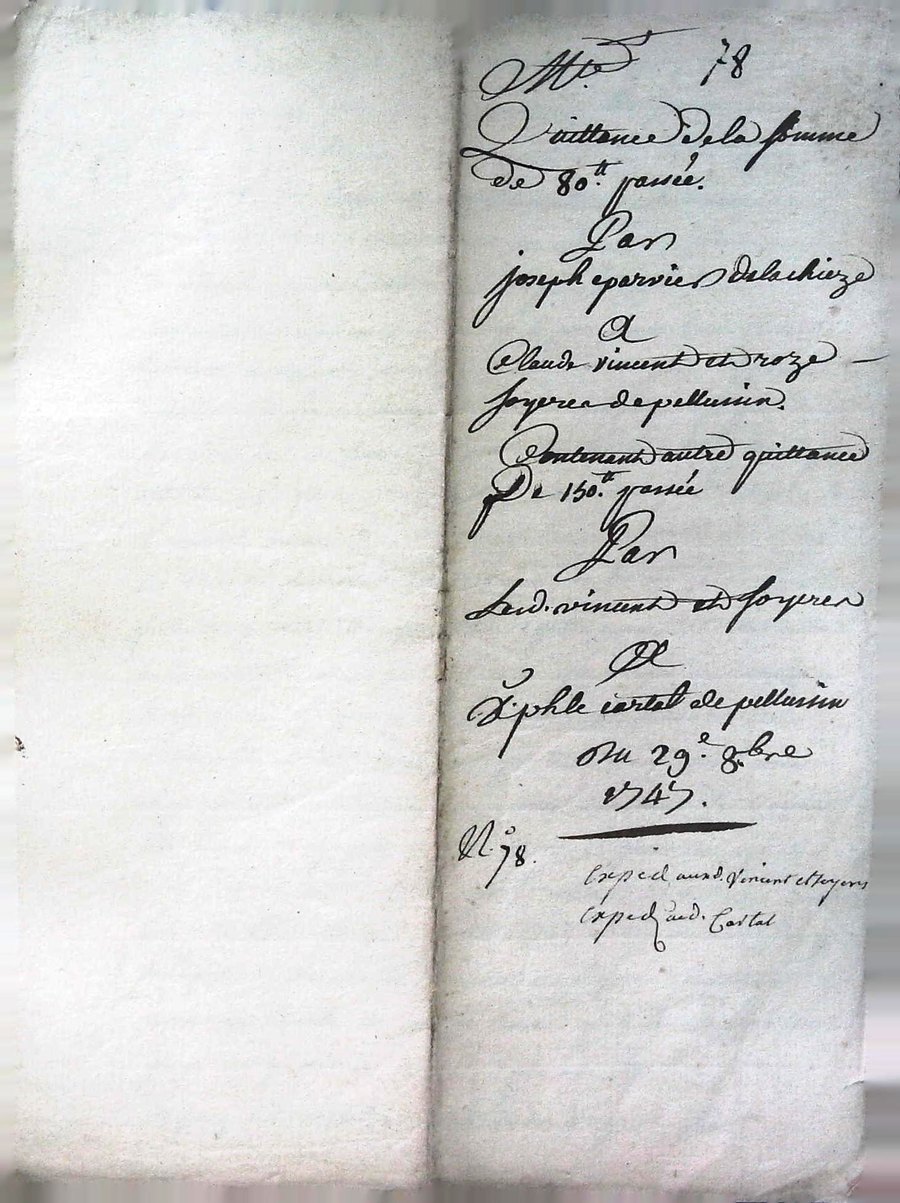 Mte 78
Quittance de la somme
de 80.tt passée.
Par
joseph eparvier delachieze
A
Claude vincent et roze
soyeres de pellussin.
Contenant autre quittance
De 150.tt passée
Par
Lesd. vincent et soyeres
A
phle cartal de pellussin
du 29.e 8.bre
1747.
N.o 78.
exped auxd. vincent et soyeres
exped aud. Cartal